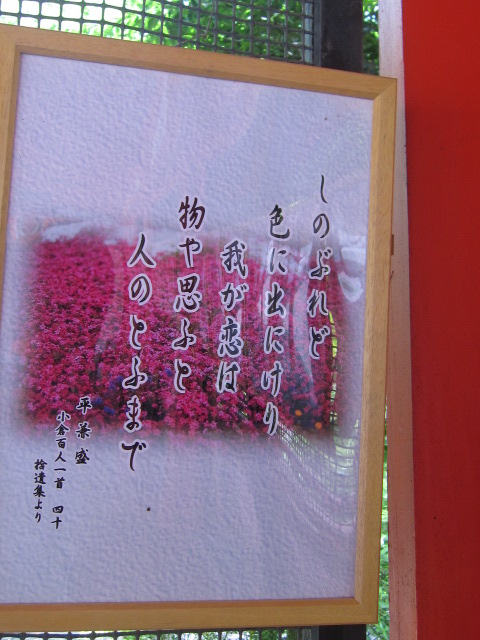 しのぶれど
色に出にけり
我が恋は
物や思ふと
人のとふまで
平兼盛
小倉百人一首 四十
拾遺集より